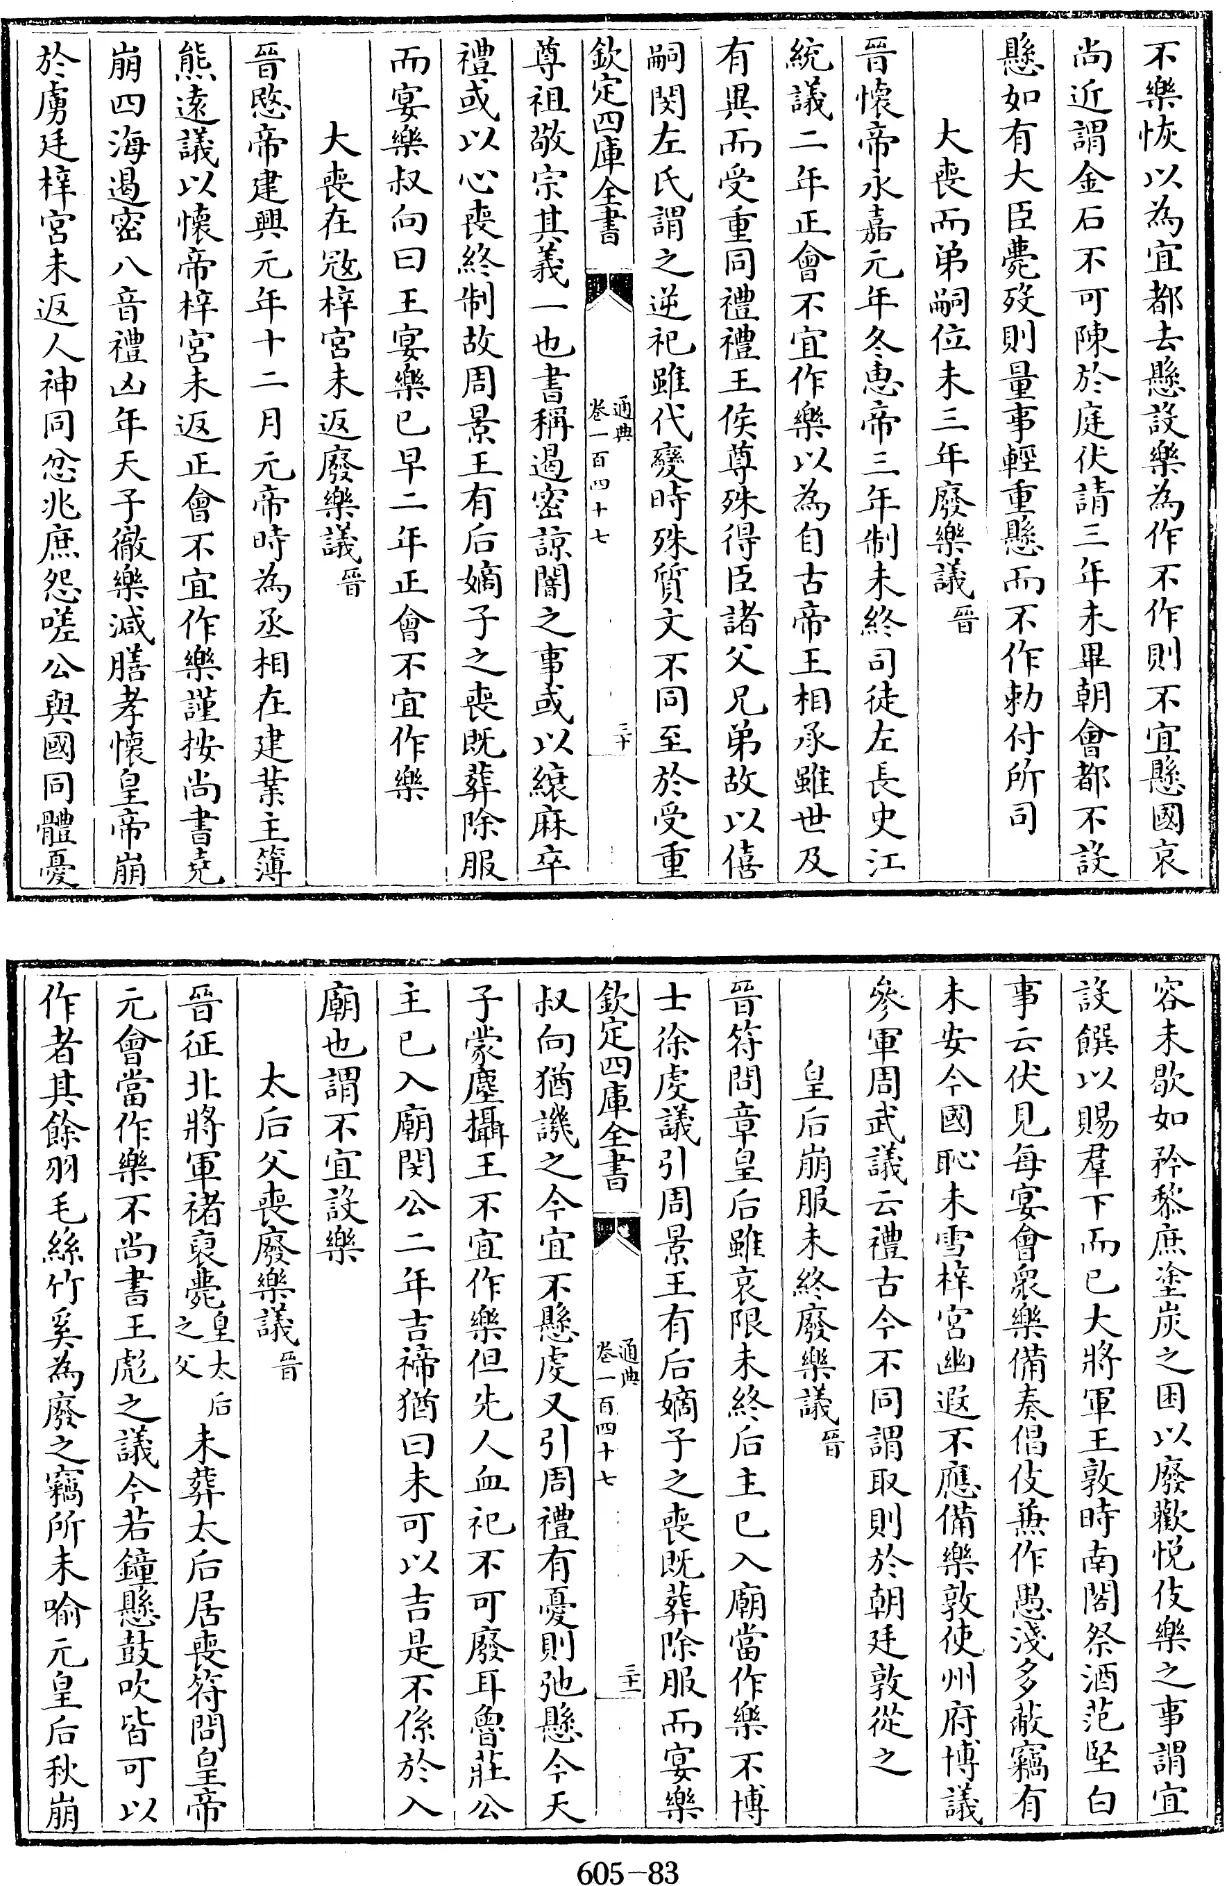 不樂恢以為宜都去懸設樂為作不作則不宜懸國哀
尚近謂金石不可陳於庭伏請三年未畢朝會都不設
懸如有大臣薨歿則量事輕重懸而不作勅付所司
大喪而弟嗣位未三年廢樂議晉
晉懷帝永嘉元年冬惠帝三年制未終司徒左長史江
統議二年正會不宜作樂以為自古帝王相承雖世及
有異而受重同禮禮王侯尊殊得臣諸父兄弟故以僖
嗣閔左氏謂之逆祀雖代變時殊質文不同至於受重
欽定四庫全書 通典 卷一百四十七 三十
尊祖敬宗其義一也書稱遏密諒闇之事或以縗麻卒
禮或以心喪終制故周景王有后嫡子之喪既葬除服
而宴樂叔向曰王宴樂已早二年正會不宜作樂
大喪在寇梓宮未返廢樂議晉
晉愍帝建興元年十二月元帝時為丞相在建業主簿
熊遠議以懷帝梓宮未返正會不宜作樂謹按尚書堯
崩四海遏密八音禮凶年天子徹樂減膳孝懷皇帝崩
於虜廷梓宮未返人神同忿兆庶怨嗟公與國同體憂
容未歇如矜黎庶塗炭之困以廢歡悅伎樂之事謂宜
設饌以賜羣下而已大將軍王敦時南閤祭酒范堅白
事云伏見每宴會衆樂備奏倡伎兼作愚淺多蔽竊有
未安今國恥未雪梓宮幽遐不應備樂敦使州府博議
參軍周武議云禮古今不同謂取則於朝廷敦從之
皇后崩服未終廢樂議晉
晉符問章皇后雖哀限未終后主已入廟當作樂不博
士徐虔議引周景王有后嫡子之喪既葬除服而宴樂
欽定四庫全書 通典 卷一百四十七 三十一
叔向猶譏之今宜不懸虔又引周禮有憂則弛懸今天
子蒙塵攝王不宜作樂但先人血祀不可廢耳魯莊公
主已入廟閔公二年吉禘猶曰未可以吉是不係於入
廟也謂不宜設樂
太后父喪廢樂議晉
晉征北將軍褚裒薨皇太后之父未葬太后居喪符問皇帝
元會當作樂不尚書王彪之議今若鐘懸鼓吹皆可以
作者其餘羽毛絲竹奚為廢之竊所未喻元皇后秋崩
605-83